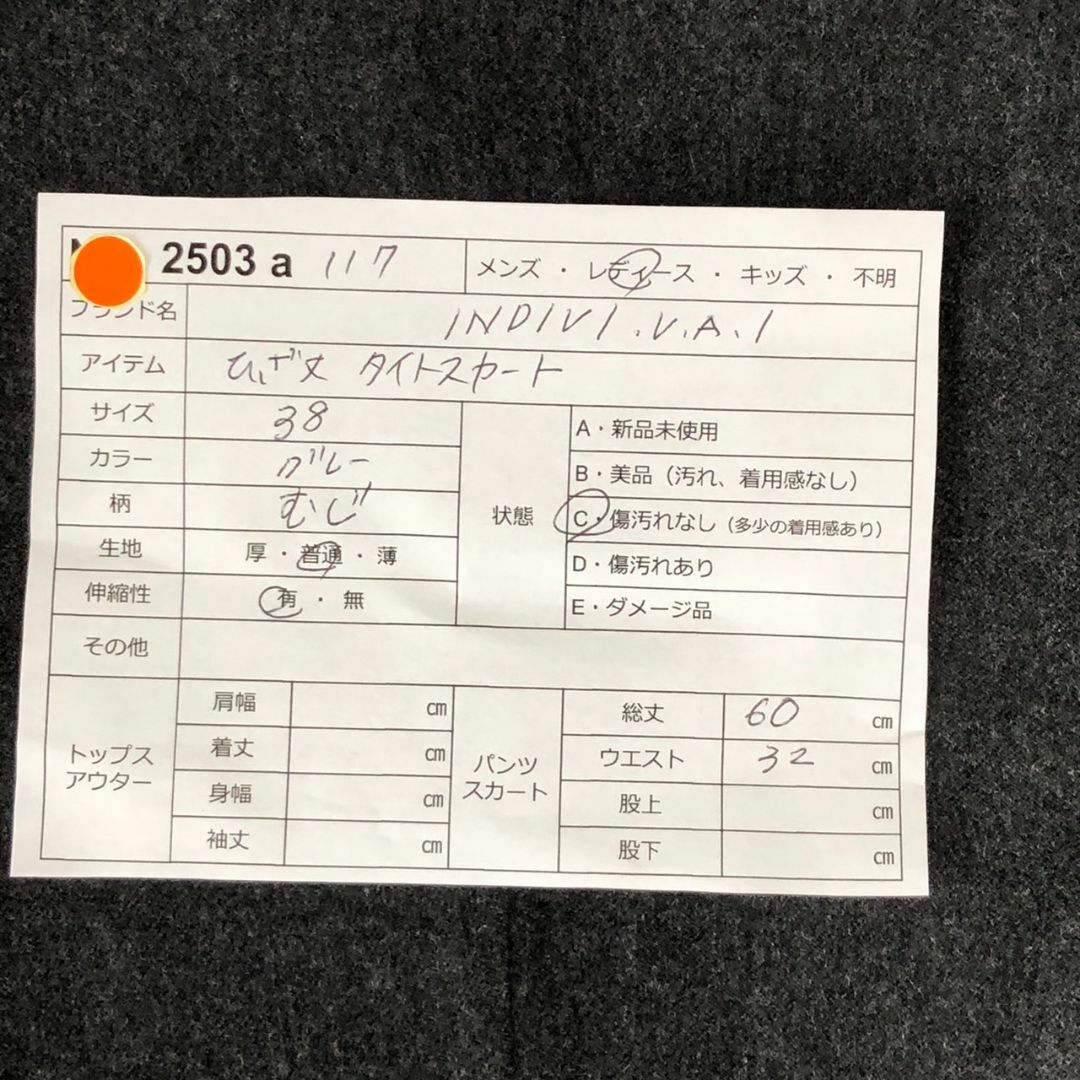 2503 a 117 メンズ ・ レディース ・ キッズ ・ 不明
ブランド名 INDIVI.V.A.I
アイテム ひざ丈 タイトスカート
サイズ 38
カラー グレー
柄 むじ
生地 厚・普通・薄
伸縮性 有 ・ 無
状態
A・新品未使用
B・美品(汚れ、着用感なし)
C・傷汚れなし(多少の着用感あり)
D・傷汚れあり
E・ダメージ品
その他
トップス
アウター
肩幅 cm
着丈 cm
身幅 cm
袖丈 cm
パンツ
スカート
総丈 60 cm
ウエスト 32 cm
股上 cm
股下 cm